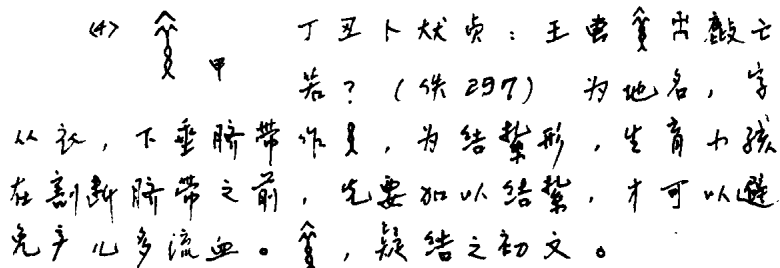 (4) 甲 丁丑卜𤞷贞：王 㞢 亡
若？（佚297）为地名，字
从衣，下垂脐带作，为结扎形，生育小孩
在割断脐带之前，先要加以结紮，才可以避
免产儿多流血。，疑结之初文。